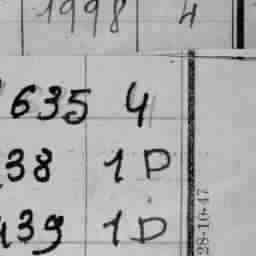 1998 4
635 4
38 1 D
439 1 D
28-10-47